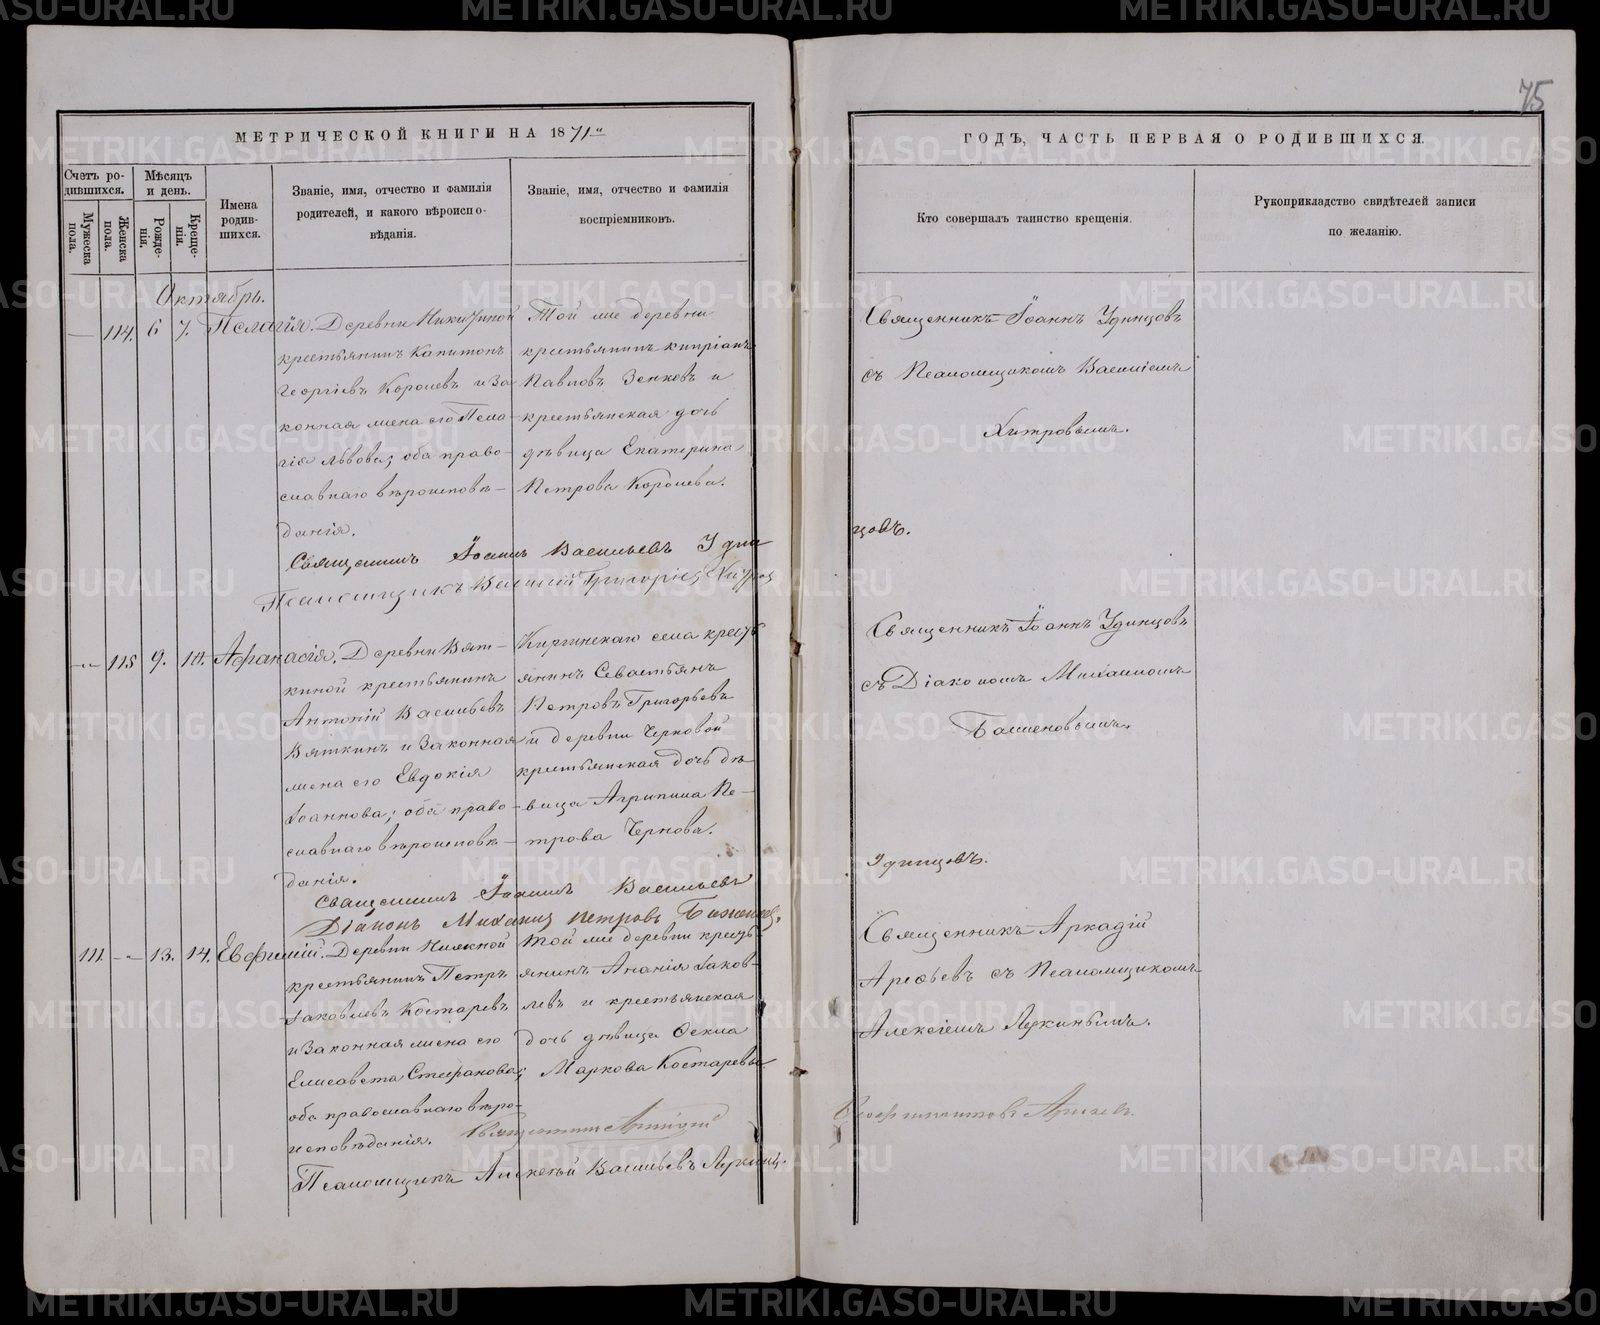 75
МЕТРИЧЕСКОЙ КНИГИ НА 1871й
ГОДЪ, ЧАСТЬ ПЕРВАЯ О РОДИВШИХСЯ.
Счетъ ро-
дившихся.
Мужеска
пола.
Женска
пола.
Мѣсяцъ
и день.
Рожде-
нія.
Креще-
нія.
Имена
родив-
шихся.
Званіе, имя, отчество и фамилія
родителей, и какого вѣроиспо-
вѣданія.
Званіе, имя, отчество и фамилія
воспріемниковъ.
Кто совершалъ таинство крещенія.
Рукоприкладство свидѣтелей записи
по желанію.
Октябрь.
— 114. 6 7. Пелагія.
Деревни Никитиной
крестьянинъ Капитонъ
Георгіевъ Королевъ и за
конная жена его Пела-
гія Львова; оба право-
славнаго вѣроисповѣ-
данія.
Той же деревни
крестьянинъ Кипріанъ
Павловъ Зенковъ и
крестьянская дочь
дѣвица Екатерина
Петрова Королева.
Священникъ Іоаннъ Удинцовъ
съ Псаломщикомъ Василіемъ
Хитровымъ.
Священникъ Іоаннъ Васильевъ Удин
цовъ.
Псаломщикъ Василій Григорьевъ
— 115 9. 10. Афанасія.
Деревни Вят-
киной крестьянинъ
Антоній Васильевъ
Вяткинъ и законная
жена его Евдокія
Іоаннова; оба право-
славнаго вѣроисповѣ-
данія.
Киргинскаго села кресть
янинъ Севастьянъ
Петровъ Григорьевъ
и деревни Черновой
крестьянская дочь дѣ-
вица Агрипина Пе-
трова Чернова.
Священникъ Іоаннъ Удинцовъ
съ Діакономъ Михаиломъ
Баженовымъ.
Священникъ Іоаннъ Васильевъ
Удинцовъ.
Діаконъ Михаилъ Петровъ Баженовъ.
111. — 13. 14. Евфимій.
Деревни Нижной
крестьянинъ Петръ
Іаковлевъ Костаревъ
и законная жена его
Елисавета Стефанова;
оба православнаго вѣро-
исповѣданія.
Той же деревни кресть
янинъ Ананія Іаков-
левъ и крестьянская
дочь дѣвица Фекла
Маркова Костаревы
Священникъ Аркадій
Арефьевъ съ Псаломщикомъ
Алексіемъ Ляпкинымъ.
Священникъ Аркадій
Арефьевъ.
Псаломщикъ Алексѣй Васильевъ
METRIKI.GASO-URAL.RU